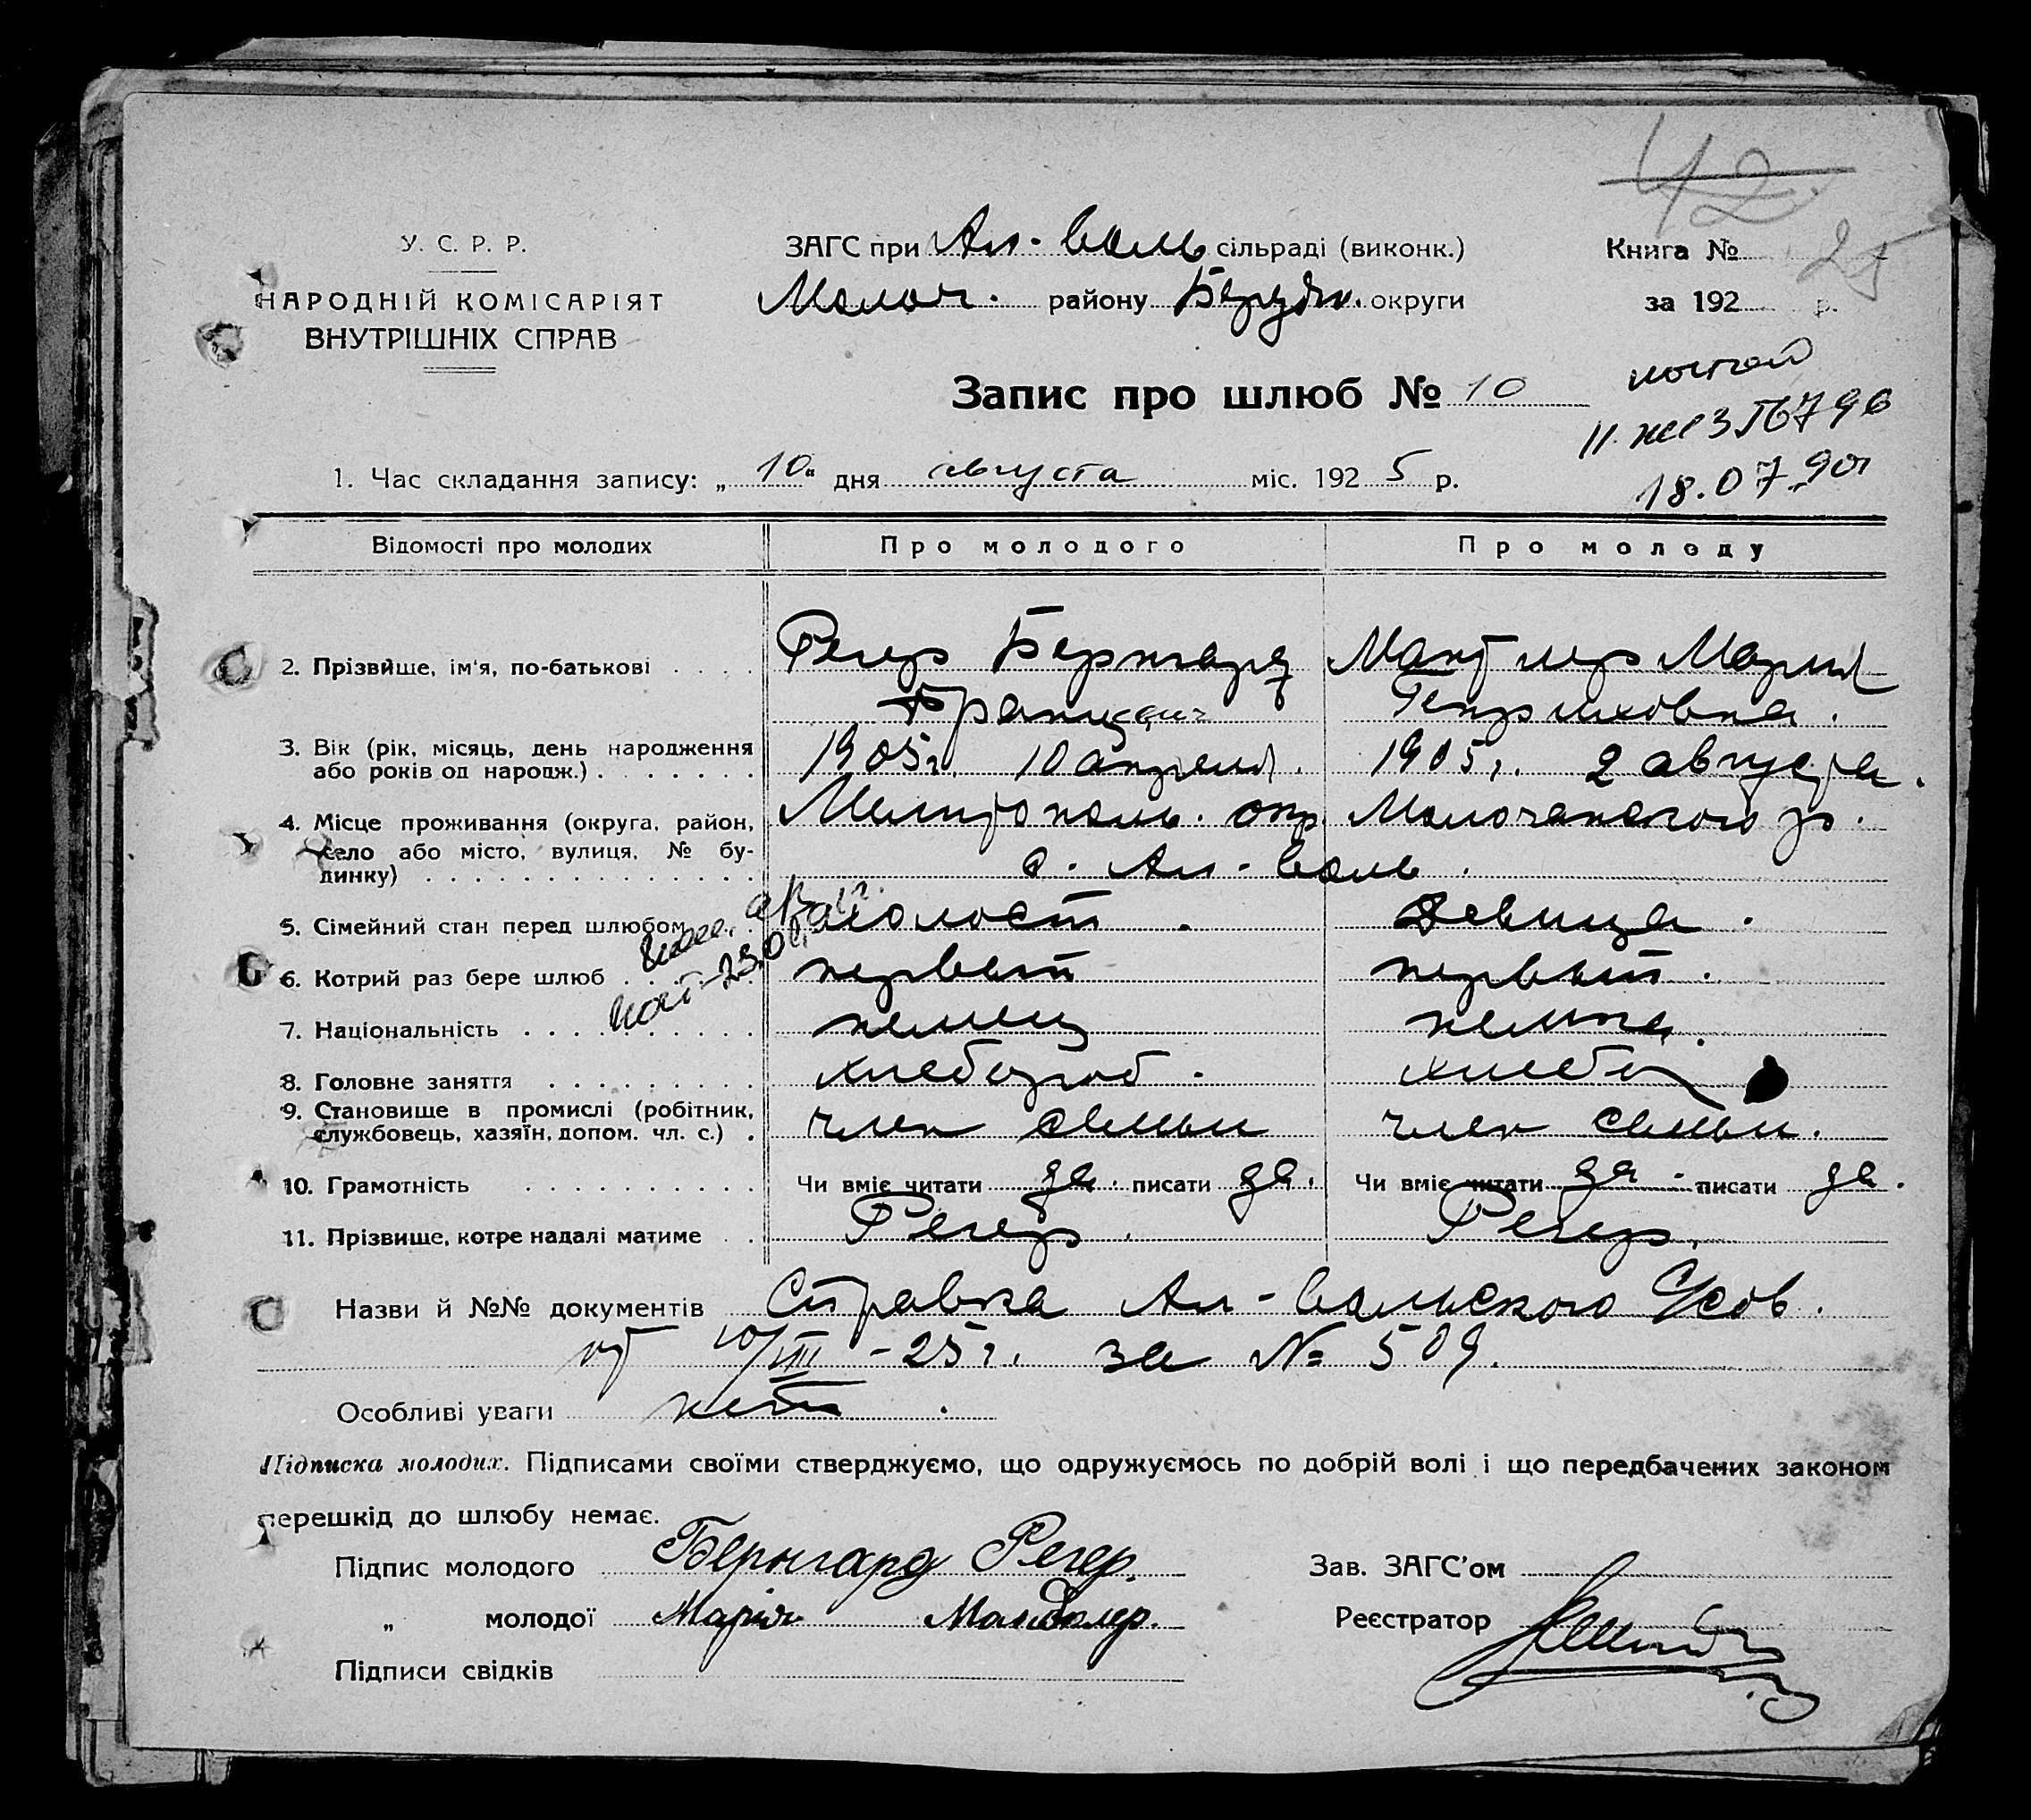 42
25
У. С. Р. Р.
НАРОДНІЙ КОМІСАРІЯТ
ВНУТРІШНІХ СПРАВ
ЗАГС при Ал-Валь сільраді (виконк.)
Молоч. району Бердян. округи
Книга №
за 192 р.
Запис про шлюб № 10
18.07.90
1. Час складання запису: „10“ дня августа міс. 1925 р.
Відомості про молодих Про молодого Про молоду
2. Прізвище, ім'я, по-батькові Регер Бернгард Мандлер Мария
Францевич Генриховна.
3. Вік (рік, місяць, день народження 1905 г. 10 апреля. 1905 г. 2 августа.
або років од народж.)
4. Місце проживання (округа, район, Мелитополь. окр. Молочанского р.
село або місто, вулиця, № бу-
динку) с. Ал-Валь.
5. Сімейний стан перед шлюбом холост. девица.
6. Котрий раз бере шлюб первый первый.
7. Національність немец немка.
8. Головне заняття хлебороб. хлебо
9. Становище в промислі (робітник,
службовець, хазяїн, допом. чл. с.) член семьи член семьи.
10. Грамотність Чи вміє читати да. писати да. Чи вміє читати да. писати да.
11. Прізвище, котре надалі матиме Регер. Регер.
Назви й №№ документів Справка Ал-Вальского С/сов.
от 10/VIII-25 г. за № 509.
Особливі уваги нет.
Підписка молодих. Підписами своїми стверджуємо, що одружуємось по добрій волі і що передбачених законом
перешкід до шлюбу немає.
Підпис молодого Бернгард Регер.
„ молодої Марія Мандлер.
Підписи свідків
Зав. ЗАГС'ом
Реєстратор